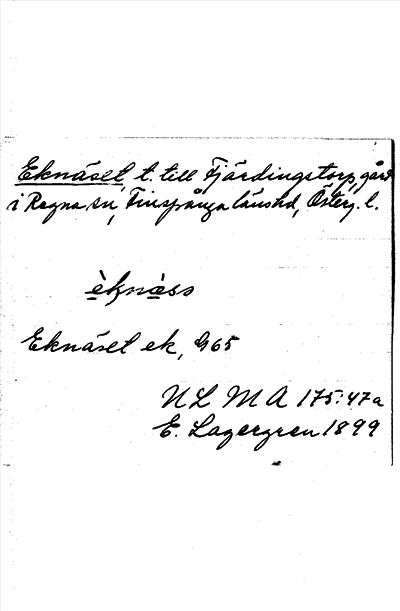 Eknäset, t. till Fjärdingstorp, gård
i Regna sn, Finspånga länshd, Österg. l.
èknàss
Eknäset ek, G65
NLMA 175:47a
E. Lagergren 1899